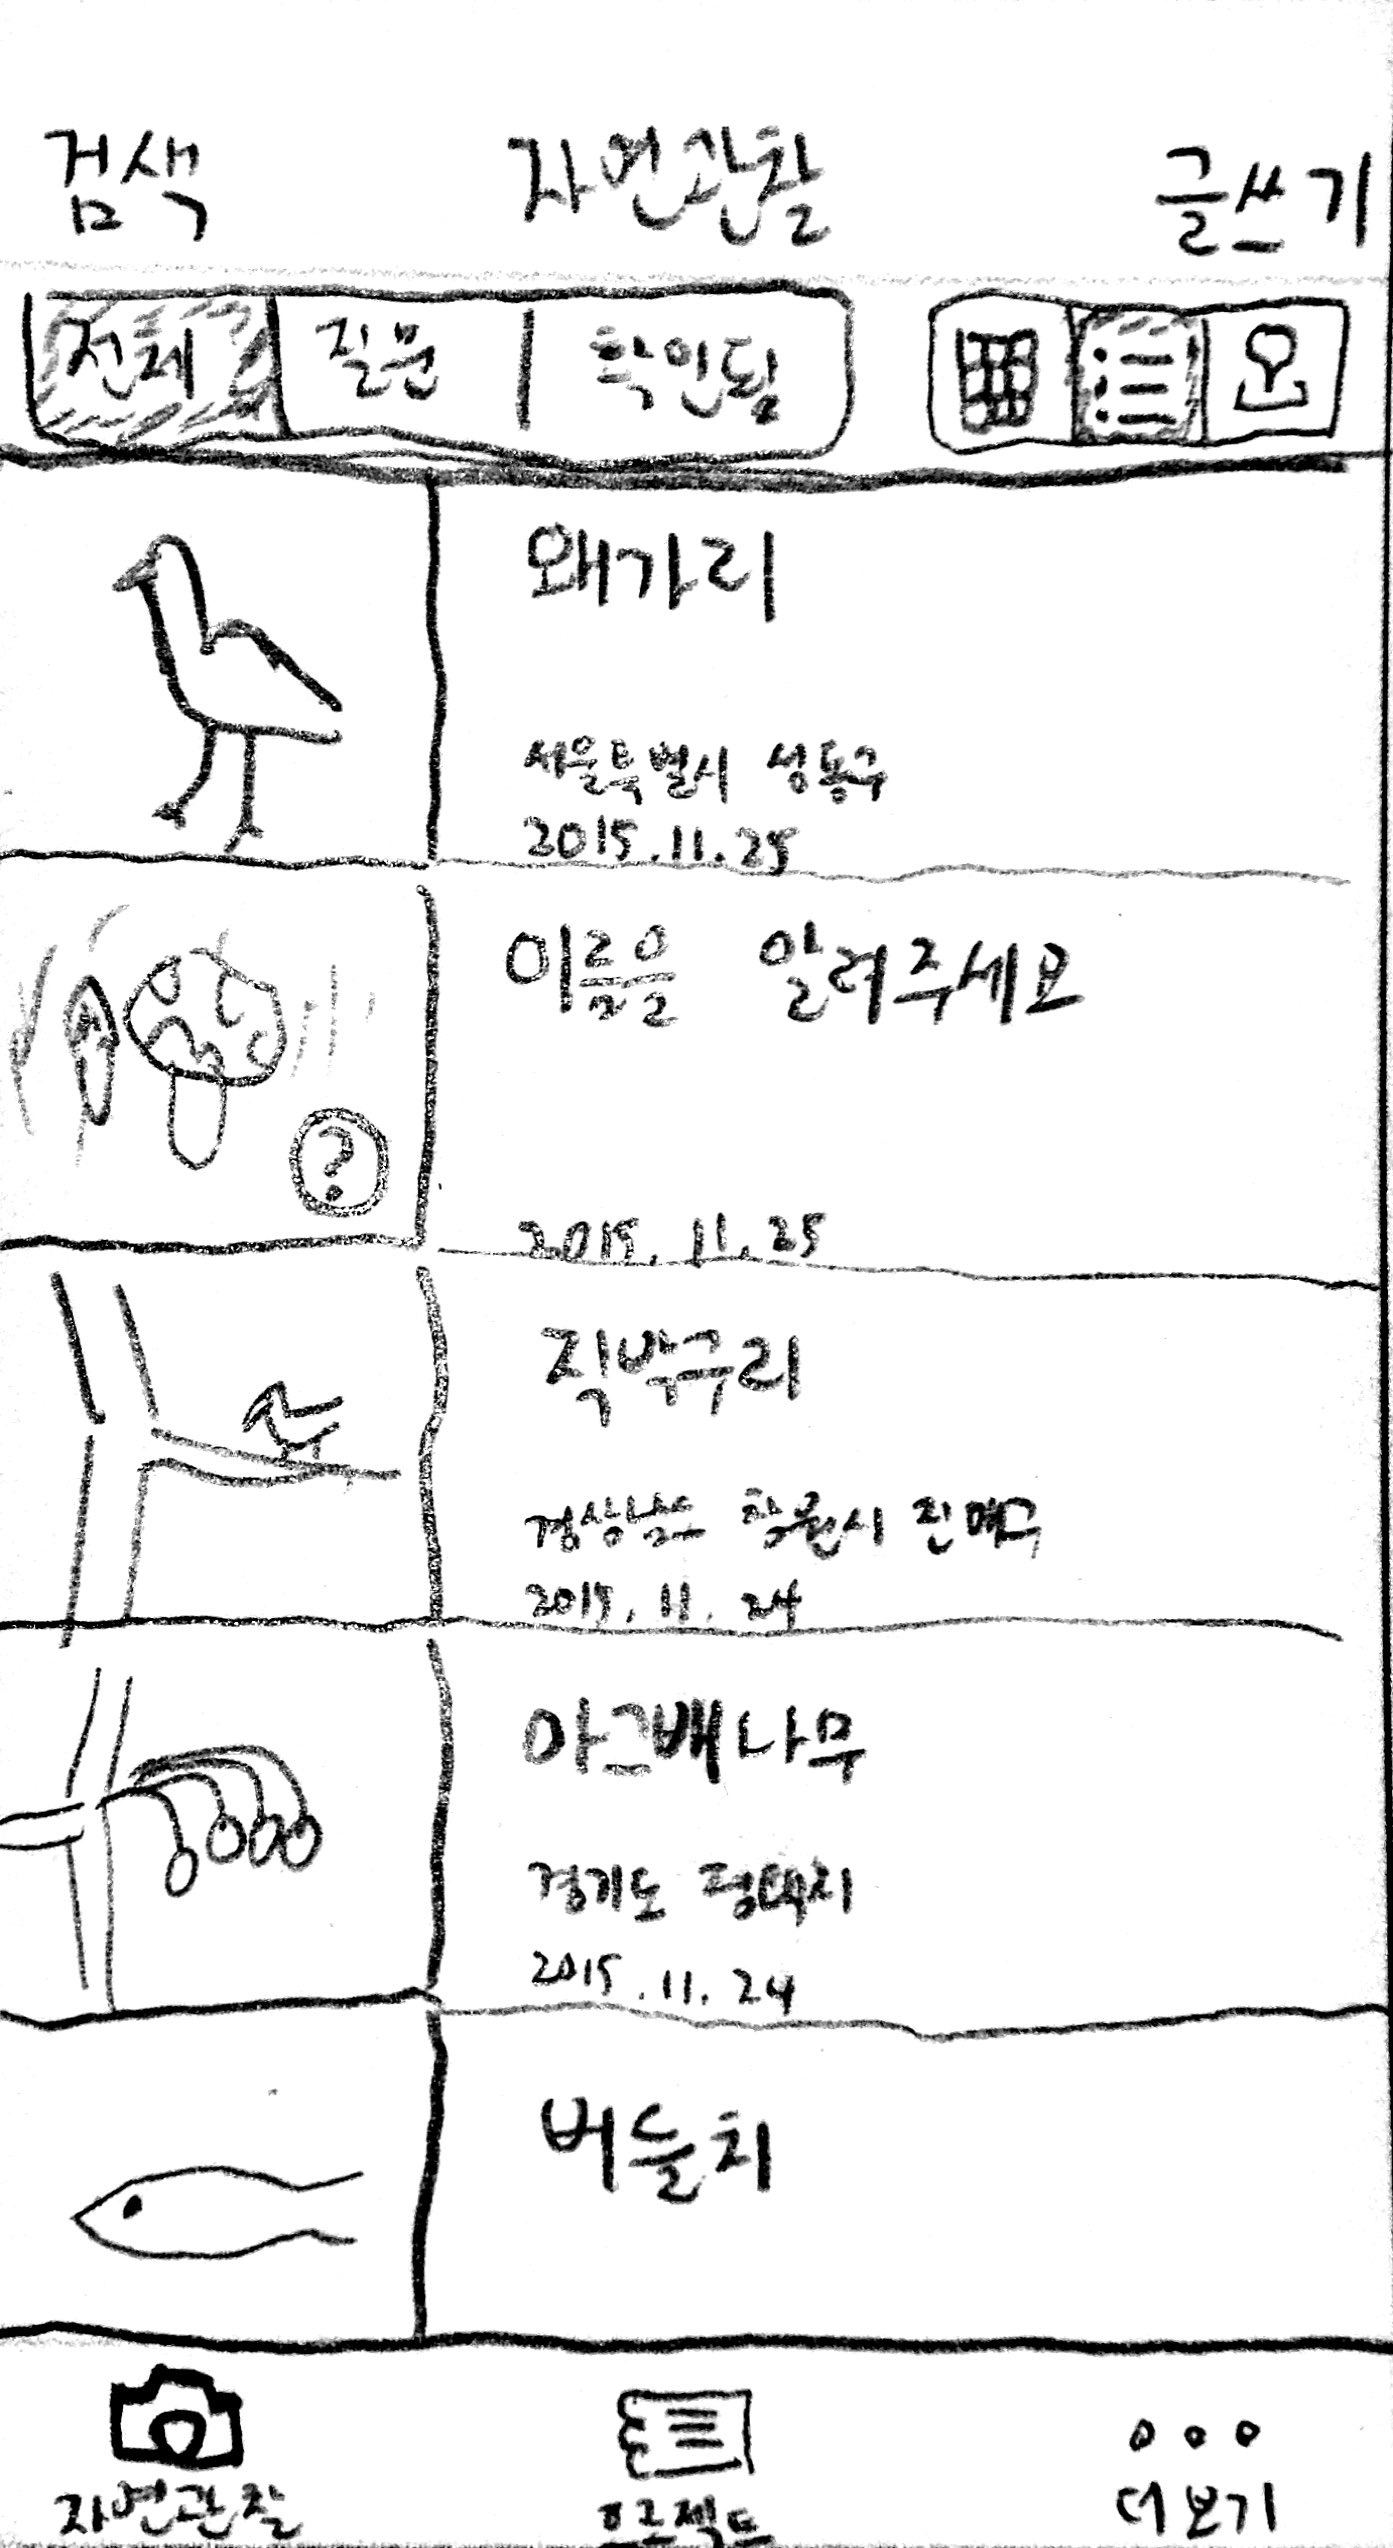 검색 자연관찰 글쓰기
전체 질문 확인됨
왜가리
서울특별시 성동구
2015.11.25
이름을 알려주세요
?
2015.11.25
직박구리
경상남도 창원시 진해구
2015.11.24
아그배나무
경기도 평택시
2015.11.24
버들치
자연관찰 프로젝트 더보기